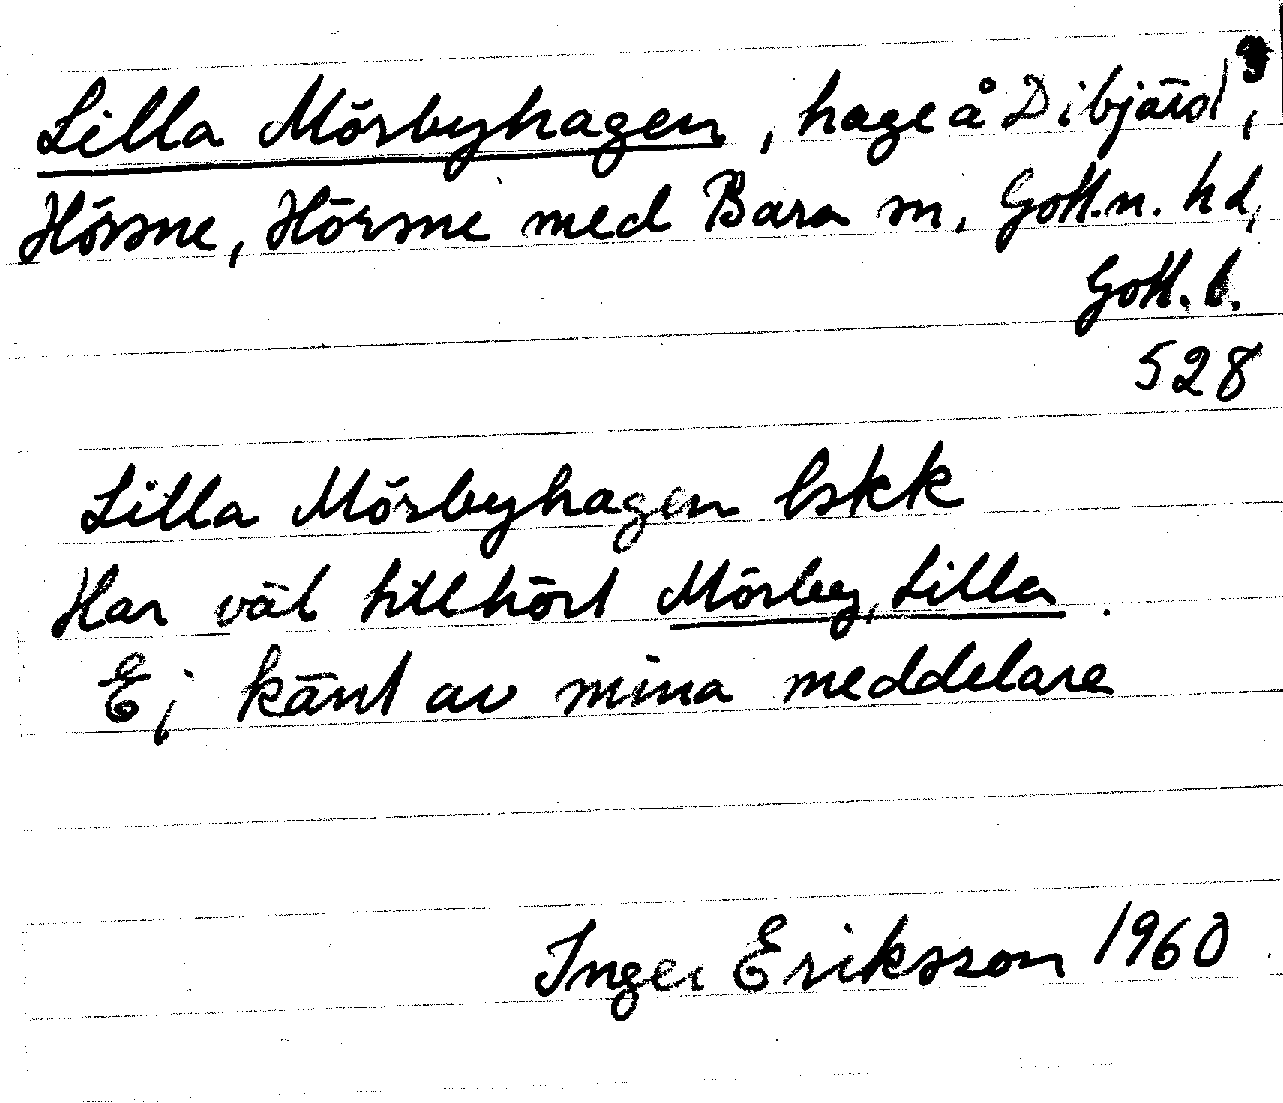 Lilla Mörbyhagen, hage å Dibjärs,
Hörsne, Hörsne med Bara sn, Gotl.n. hd,
Gotl. l.
528
Lilla Mörbyhagen lskk
Har väl tillhört Mörby, Lilla.
Ej känt av mina meddelare
Inger Eriksson 1960